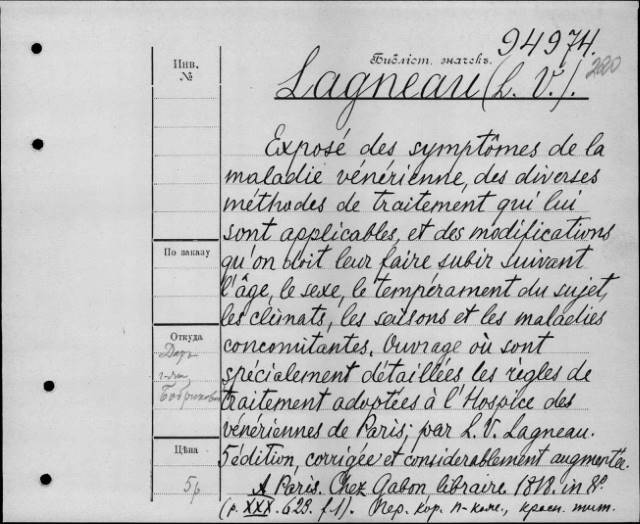 94974.
Библiот. значекъ.
220
Инв.
№
Lagneau (L. V.).
Exposé des symptômes de la
maladie vénérienne, des diverses
méthodes de traitement qui lui
sont applicables, et des modifications
По заказу
qu'on doit leur faire subir suivant
l'âge, le sexe, le tempérament du sujet,
les climats, les saisons et les maladies
Откуда
Даръ
г-на
concomitantes. Ouvrage où sont
spécialement détaillées les règles de
traitement adoptées à l'Hospice des
vénériennes de Paris; par L. V. Lagneau.
Цѣна
5 р
5 édition, corrigée et considerablement augmentée.
A Paris. Chez Gabon libraire. 1818. in 8º.
(p. XXX. 623. f. 1). Пер. кор. п-кож., красн. тит.